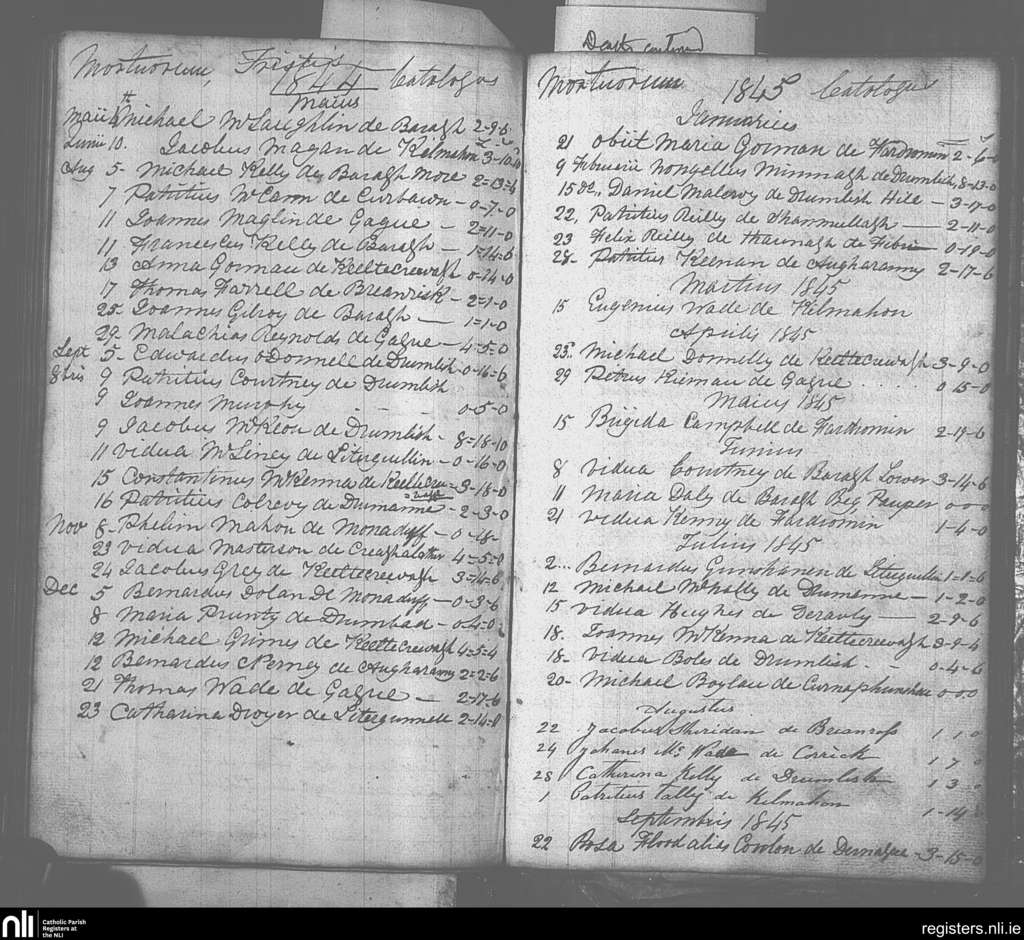 Mortuorum, Tristis Catalogus
1844
Maius
Maii Michael McLaughlin de Baragh 2-9-6
Junii 10. Jacobus Magan de Kelmahon 3-10-
Aug 5- Michael Kelly de Baragh More 2=13=6
7 Patritius McCann de Curbawn - 0-7-0
11 Joannes Maglin de Gague - 2=11-0
11 Francescus Kelly de Baragh - 1=14=0
13 Anna Gorman de Keeltecrevagh 0-14-0
17 Thomas Farrell de Breanrisk - 2=1-0
25- Joannes Gilroy de Baragh - 1=1-0
29- Malachias Reynolds de Gague - 4-5-0
Sept 5- Edwardus O Donnell de Drumlish -0-16=6
8bris 9 Patritius Courtney de Drumlish
9 Joannes Murphy 0-5-0
9 Jacobus McKeon de Drumlish - 8=18-10
11 vidua McLiney de Literguillin - 0-16=0
15 Constantinus McKenna de Keeltecre= 3-18-0
16 Patritius Colrevy de Drumanne - 2-3-0
Nov 8- Phelim Mahon de Monaduff - 0-18-
23 vidua Masterson de 4=5=0
24 Jacobus Grey de Keeltecreevagh 3=14=6
Dec 5 Bernardus Dolan De Monaduff - 0-3-6
8 Maria Prunty de Drumbad - 0-4=0
12 Michael Grimes de Keeltecreevagh 4=5=4
12 Bernardus McNerney de Augharanny 2=2=6
21 Thomas Wade de Gague - 2=17=6
23 Catharina Dwyer de Litergunnell 2-14=0
Deaths continued
Mortuorum 1845 Catalogus
Januarius
21 obiit Maria Gorman de Fardromin 2-6-0
9 Februarii Monnagh de Drumlish 8-13-0
15 do. Daniel Maleroy de Drumlish Hill - 3-17-0
22, Patritius Reilly de Shanmullagh - 2-11-0
23 Felix Reilly de 0-19-0
28- Patritius Keenan de Augharanny 2-17-6
Martius 1845
15 Eugenius Wade de Kelmahon
Aprilis 1845
25. Michael Donnelly de Keeltecrewagh 3-9-0
29 Petrus Kiernan de Gague 0 15-0
Maius 1845
15 Brigida Campbell de Fardromin 2-19-6
Junius
8 vidua Courtney de Baragh Lower 3-14-6
11 Maria Daly de Baragh Beg Pauper 0-0-0
21 vidua Kenny de Fardromin 1-4-0
Julius 1845
2... Bernardus de Literguillin 1=1=6
12 Michael McNally de Drumanne - 1-2-0
15 vidua Hughes de Derawly - 2-9-6
18. Joannes McKenna de Keeltecreevagh 3-9-4
18- vidua Boles de Drumlish - 0-4-6
20- Michael Boylan de 0-0-0
Augustus
22 Jacobus Sheridan de Breanross 1 1 0
24 Johanes Mc Wade de Corrick 1 7 0
28 Catherina Kelly de Drumlish 1 3 -
1 Patritius Tally de Kelmahon 1-14
Septembris 1845
22 Rosa Flood alias Conlon de Dernagee - 3-15-0
nli Catholic Parish
Registers at
the NLI
registers.nli.ie